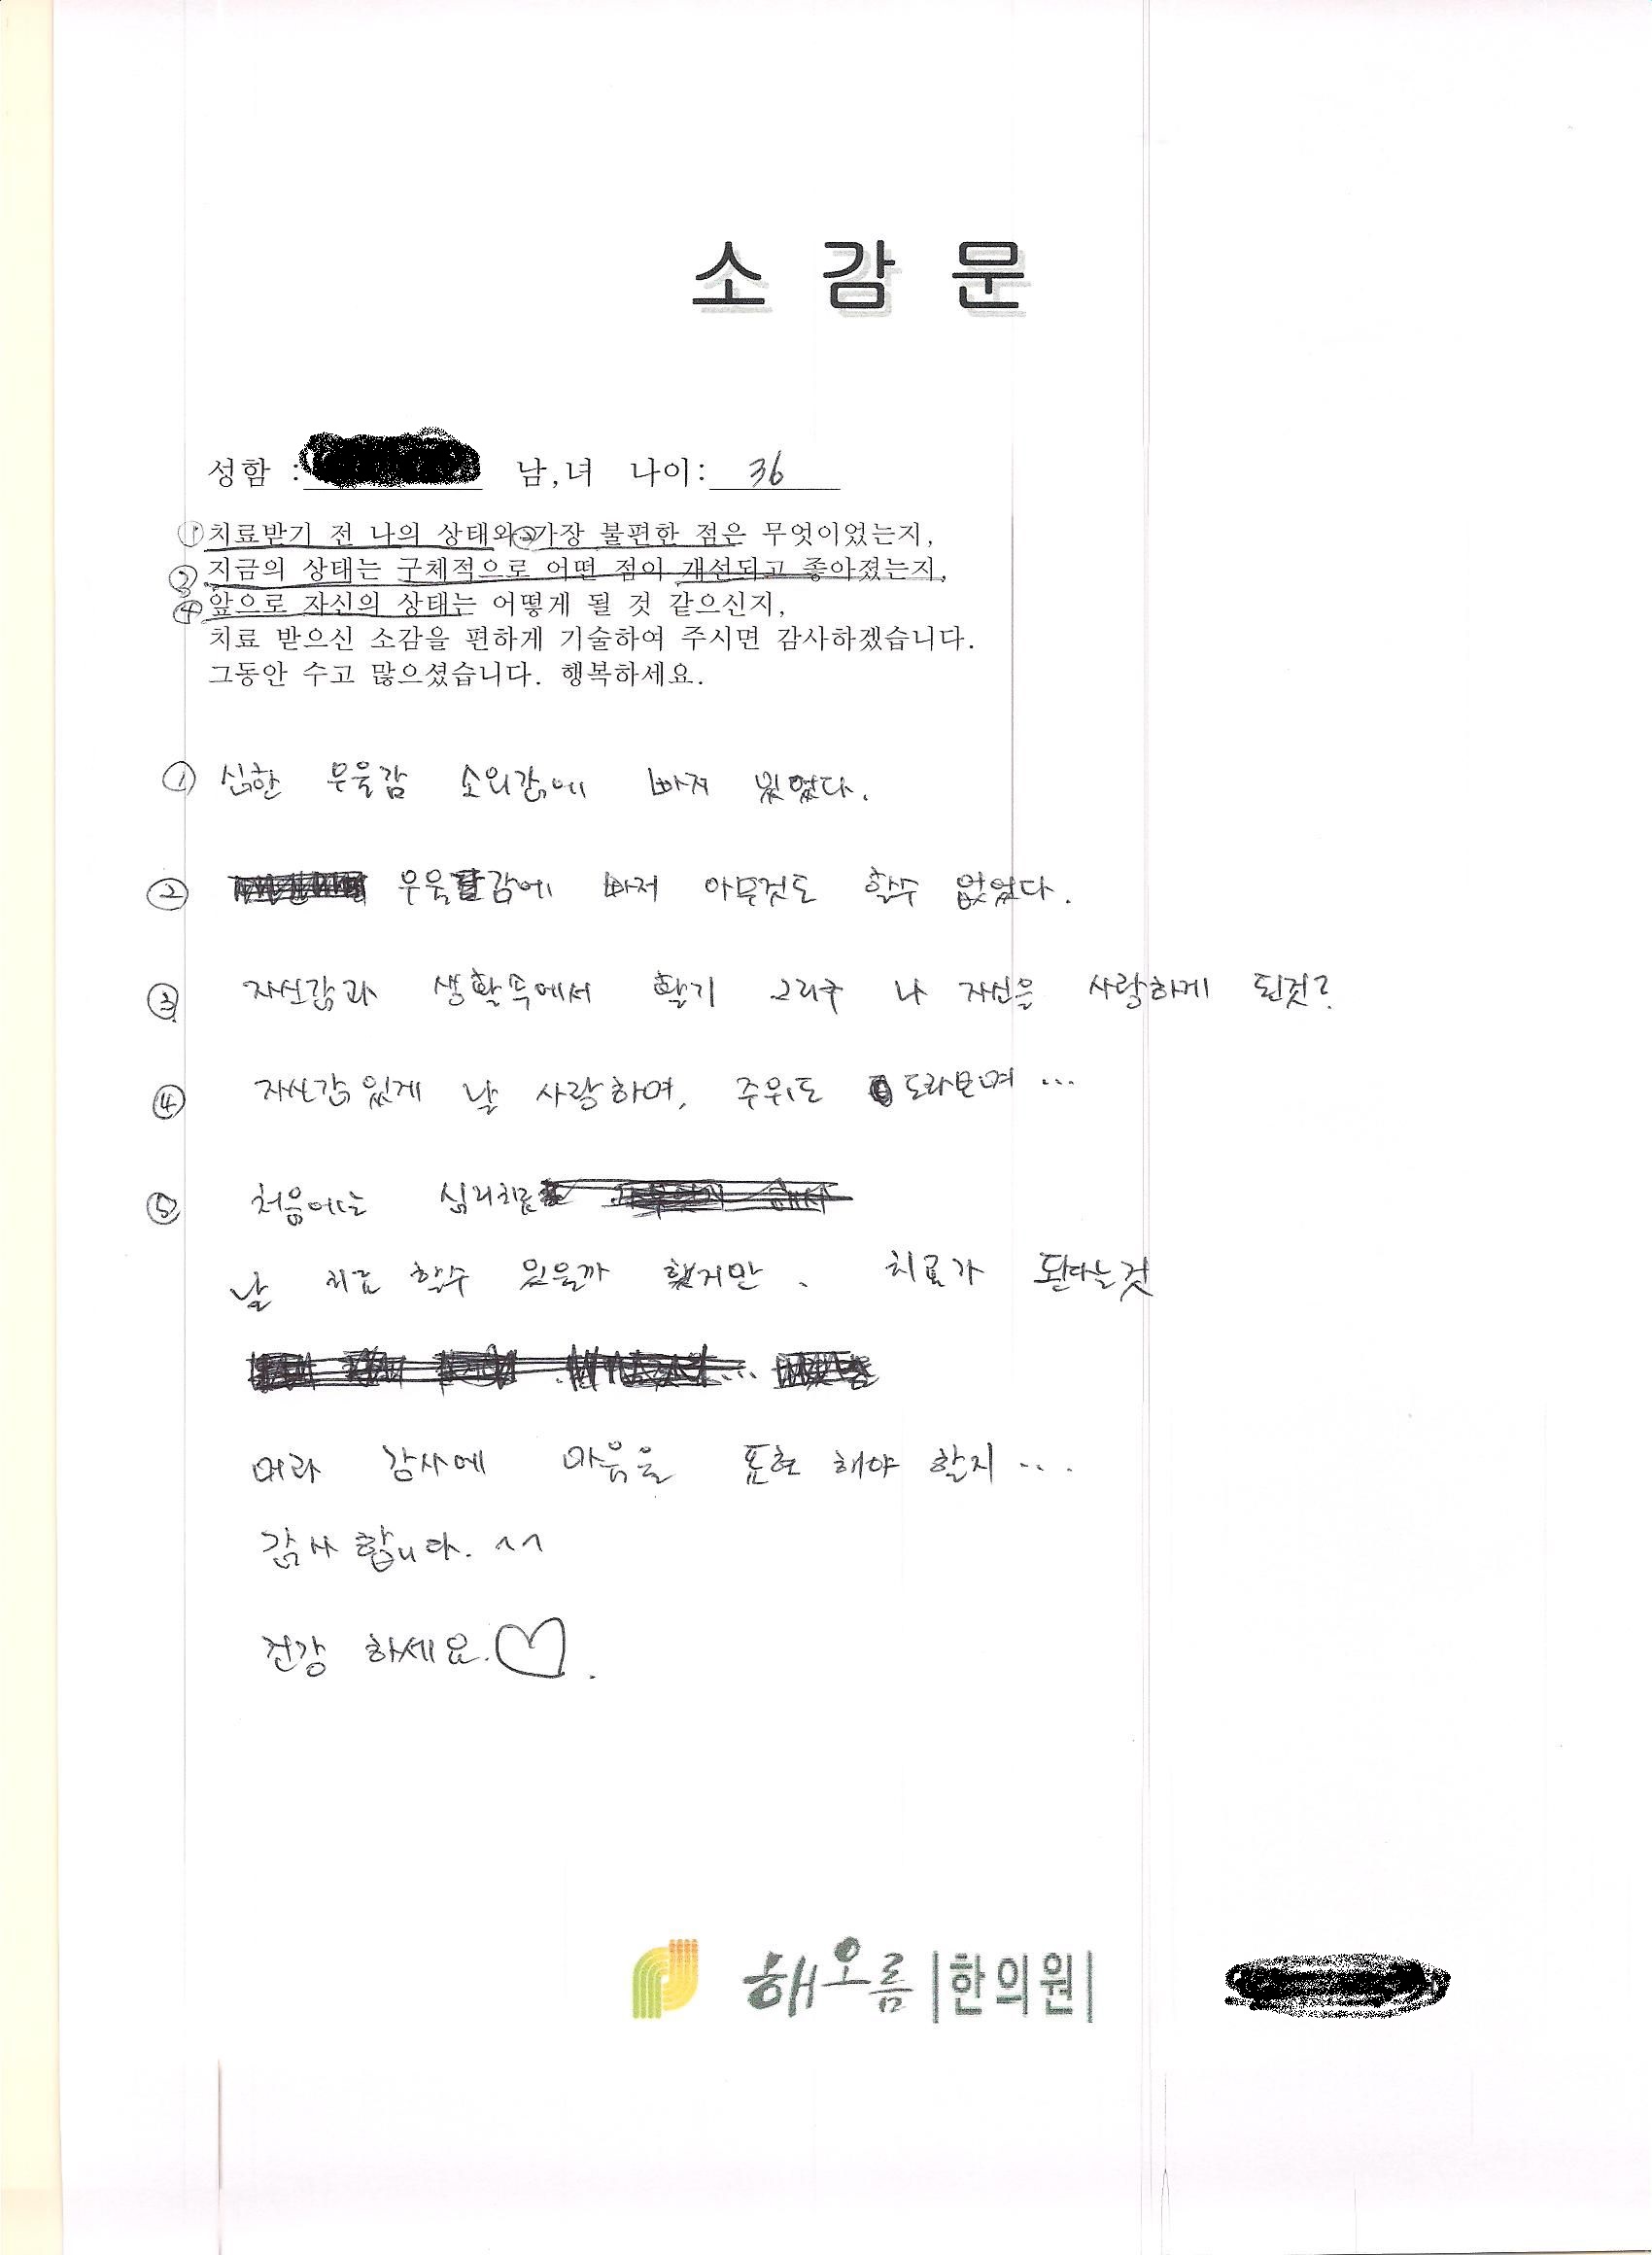 소 감 문
성함 : 남,녀 나이: 36
① 치료받기 전 나의 상태와 ② 가장 불편한 점은 무엇이었는지,
③ 지금의 상태는 구체적으로 어떤 점이 개선되고 좋아졌는지,
④ 앞으로 자신의 상태는 어떻게 될 것 같으신지,
치료 받으신 소감을 편하게 기술하여 주시면 감사하겠습니다.
그동안 수고 많으셨습니다. 행복하세요.
① 심한 우울감 소외감에 빠져 있었다.
② 우울감에 빠져 아무것도 할수 없었다.
③ 자신감과 생활속에서 활기 그리구 나 자신을 사랑하게 된것?
④ 자신감있게 날 사랑하며, 주위도 도라보며 ...
⑤ 처음에는 심리치료
날 치료 할수 있을까 했지만. 치료가 됀다는것
머라 감사에 마음을 표현 해야 할지 ...
감사 합니다. ^^
건강 하세요.♡.
해오름|한의원|